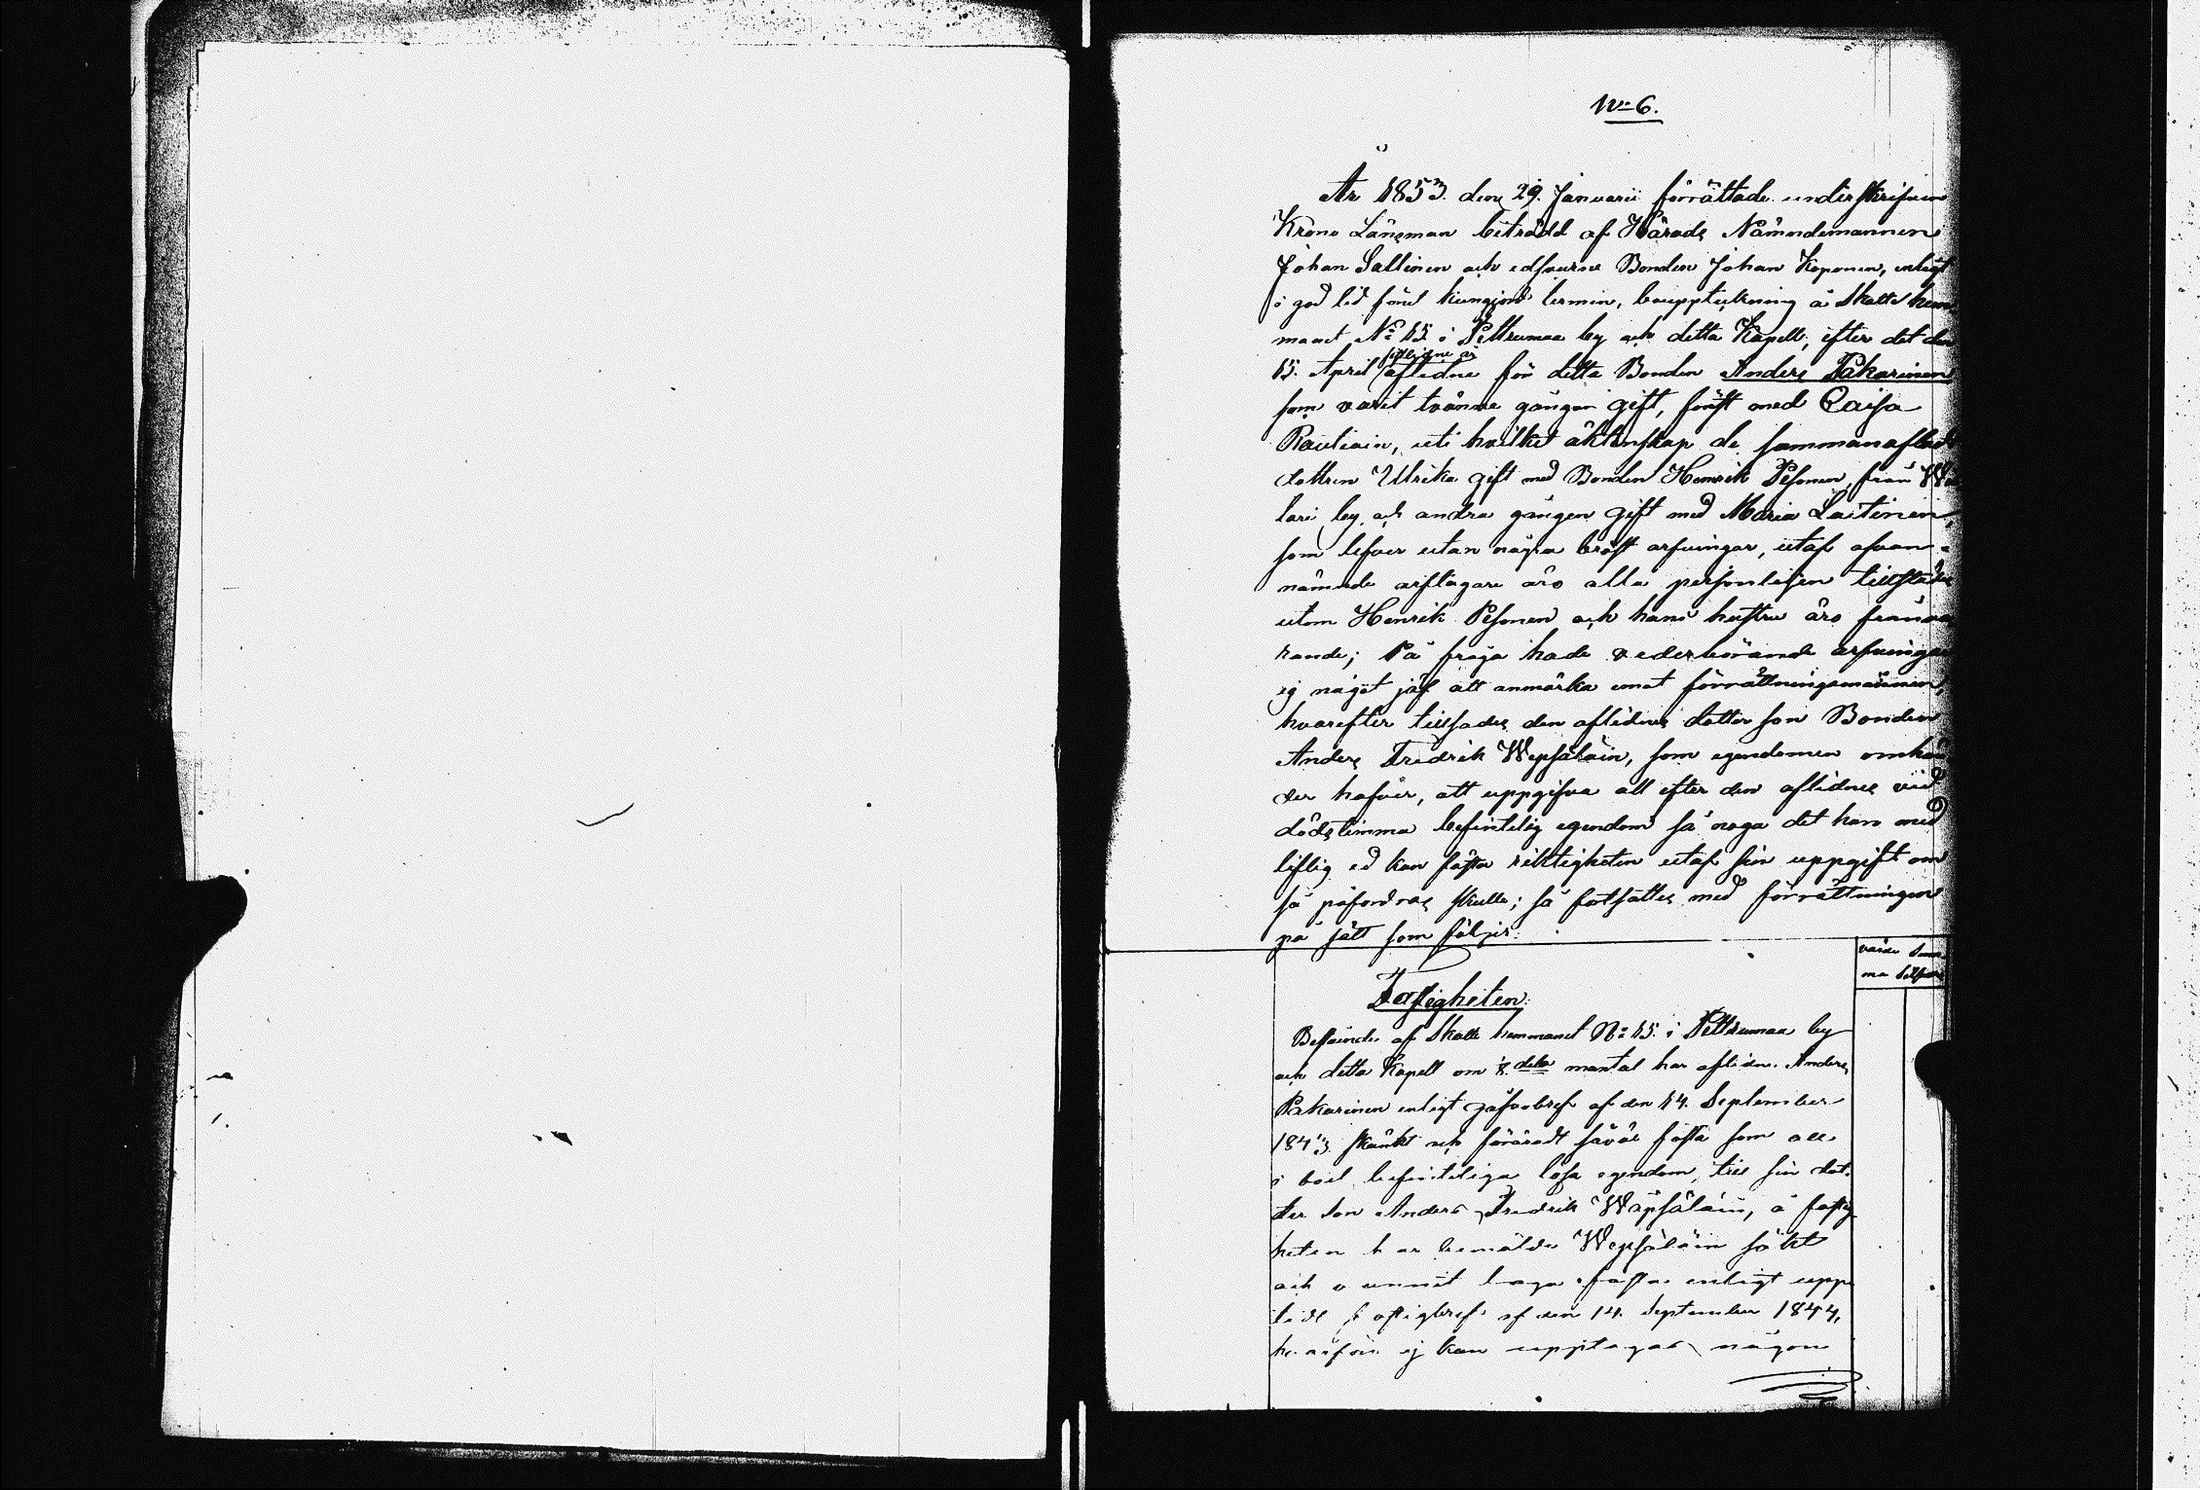 No 6.
År 1853. den 29. Januarii förrättade underskrifven
Krono Länsman biträdd af Härads Nämndemannen
Johan Sallinen och edsvurne Bonden Johan Koponen, enligt
i god tid förut kungjord termin, bouppteckning å Skatte hem
manet No 15 i Pettrumaa by och detta Kapell, efter det den
15. April sistledne år aflidne för detta Bonden Anders Pakarinen
som varit tvänne gånger gift, först med Caisa
Rautiain, uti hvilket äktenskap de sammanaflat
dottren Ulrika gift med Bonden Henrik Pesonen, från
lari by, och andra gången gift med Maria Laitinen,
som lefver utan några bröst arfvingar, utaf ofvan-
nämnde arftagare äro alla personligen tillstädes
utom Henrik Pesonen och hans hustru äro frånva
rande; På fråga hade vederbörande arfvingar
ej något jäf att anmärka emot förrättningsmännen,
hvarefter tillsades den aflidnes dotter son Bonden
Anders Fredrik Wepsäläin, som egendomen omhän
der hafver, att uppgifva all efter den aflidnes vid
dödstimma befintelig egendom så noga det han med
liflig ed kan fästa riktigheten utaf sin uppgift om
så påfordras skulle; så fortsattes med förrättningen
på sätt som följer:
värde Sum
ma Silfver
Fastigheten:
Bestående af Skatte hemmanet No 15. i Pettrumaa by
och detta Kapell om 8.dels mantal har aflidne Anders
Pakarinen enligt gåfvobref af den 14. September
1843 skänkt och förärat såväl fasta som all
i boet befinteliga lösa egendom, till sin dot-
ter son Anders Fredrik Wäpsäläin, å fastig
heten har bemälde Wepsäläin sökt
och vunnit laga fasta enligt upp
tedt fastighetsbref af den 14. September 1844,
hvarföre ej kan upptagas någon